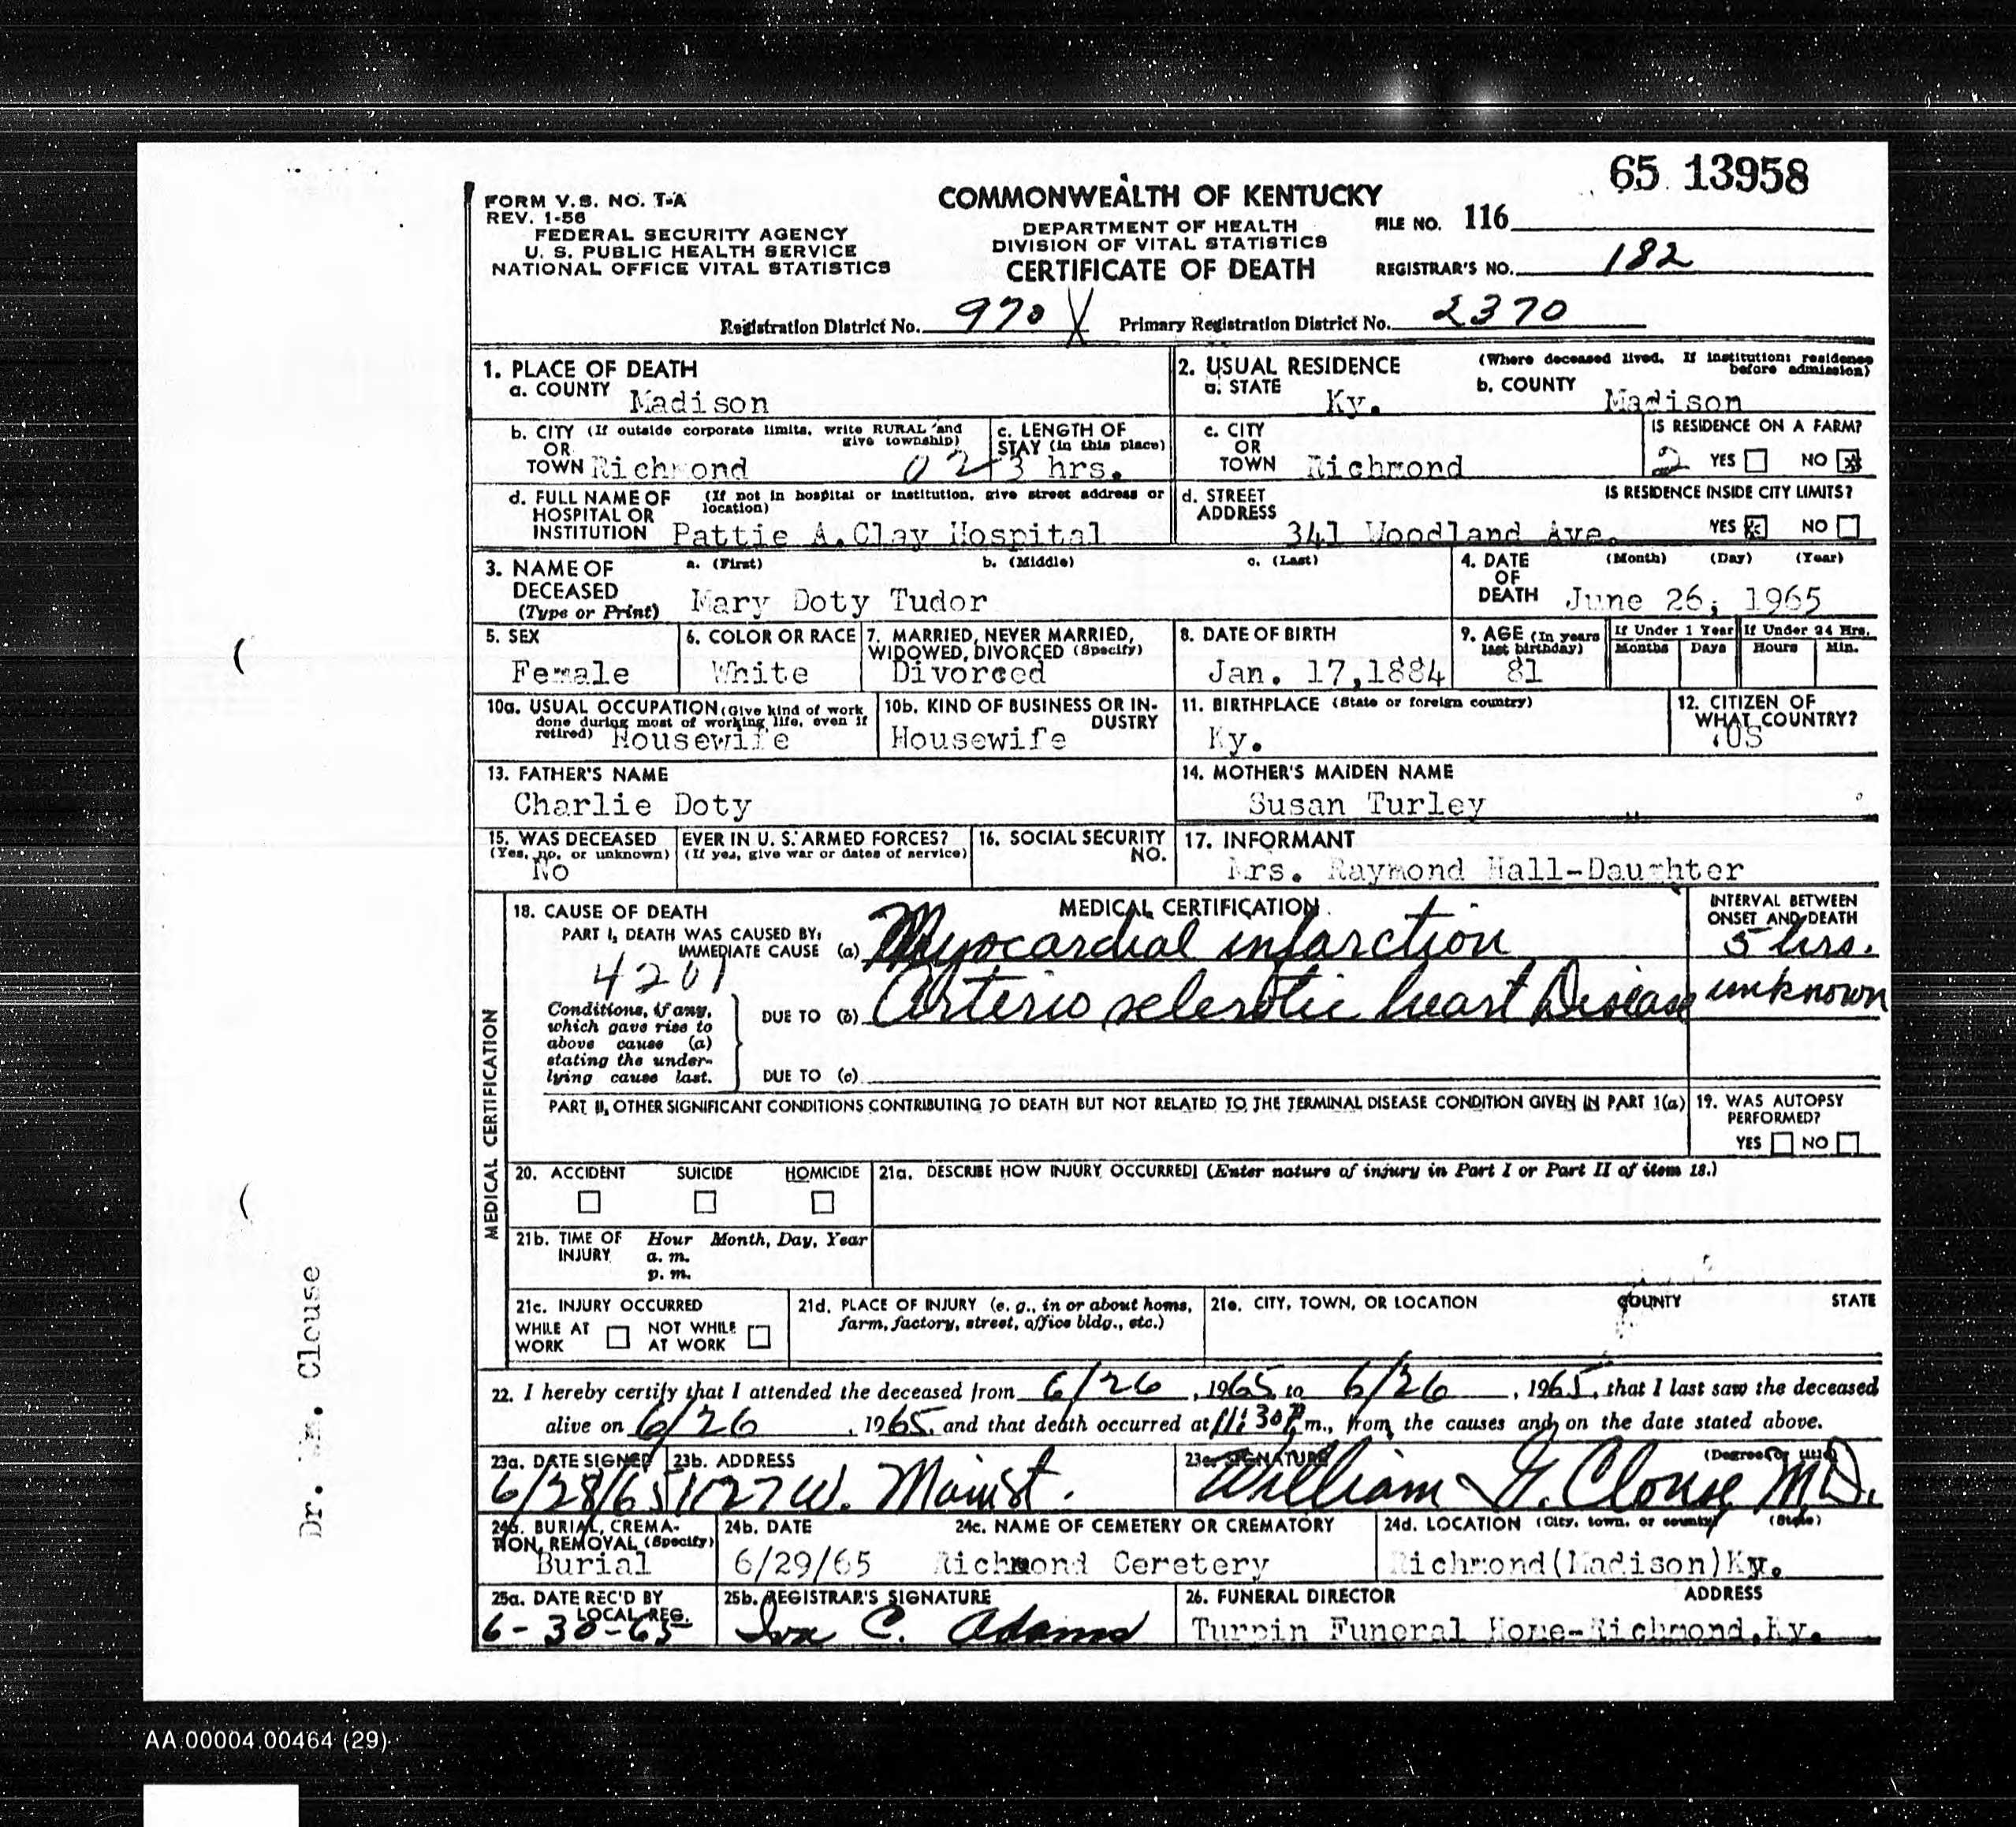 65 13958
FORM V.S. NO. T-A
REV. 1-56
FEDERAL SECURITY AGENCY
U. S. PUBLIC HEALTH SERVICE
NATIONAL OFFICE VITAL STATISTICS
COMMONWEALTH OF KENTUCKY
DEPARTMENT OF HEALTH
DIVISION OF VITAL STATISTICS
CERTIFICATE OF DEATH
FILE NO. 116
REGISTRAR'S NO. 182
Registration District No. 970 Primary Registration District No. 2370
1. PLACE OF DEATH
a. COUNTY Madison
2. USUAL RESIDENCE (Where deceased lived. If institution: residence before admission)
a. STATE Ky. b. COUNTY Madison
b. CITY (If outside corporate limits, write RURAL and give township)
OR
TOWN Richmond 02
c. LENGTH OF STAY (in this place)
3 hrs.
c. CITY
OR
TOWN Richmond
IS RESIDENCE ON A FARM?
2 YES NO x
d. FULL NAME OF HOSPITAL OR INSTITUTION (If not in hospital or institution, give street address or location)
Pattie A.Clay Hospital
d. STREET ADDRESS
341 Woodland Ave.
IS RESIDENCE INSIDE CITY LIMITS?
YES x NO
3. NAME OF DECEASED (Type or Print) a. (First) b. (Middle) c. (Last)
Mary Doty Tudor
4. DATE OF DEATH (Month) (Day) (Year)
June 26, 1965
5. SEX
Female
6. COLOR OR RACE
White
7. MARRIED, NEVER MARRIED, WIDOWED, DIVORCED (Specify)
Divorced
8. DATE OF BIRTH
Jan. 17,1884
9. AGE (In years last birthday)
81
If Under 1 Year
Months Days
If Under 24 Hrs.
Hours Min.
10a. USUAL OCCUPATION (Give kind of work done during most of working life, even if retired)
Housewife
10b. KIND OF BUSINESS OR INDUSTRY
Housewife
11. BIRTHPLACE (State or foreign country)
Ky.
12. CITIZEN OF WHAT COUNTRY?
US
13. FATHER'S NAME
Charlie Doty
14. MOTHER'S MAIDEN NAME
Susan Turley
15. WAS DECEASED EVER IN U. S. ARMED FORCES?
(Yes, no, or unknown) (If yes, give war or dates of service)
No
16. SOCIAL SECURITY NO.
17. INFORMANT
Mrs. Raymond Hall-Daughter
MEDICAL CERTIFICATION
18. CAUSE OF DEATH
MEDICAL CERTIFICATION
INTERVAL BETWEEN ONSET AND DEATH
PART I, DEATH WAS CAUSED BY:
IMMEDIATE CAUSE (a) Myocardial infarction 5 hrs.
4201
Conditions, if any, which gave rise to above cause (a) stating the underlying cause last.
DUE TO (b) Arterio sclerotic heart Disease unknown
DUE TO (c)
PART II, OTHER SIGNIFICANT CONDITIONS CONTRIBUTING TO DEATH BUT NOT RELATED TO THE TERMINAL DISEASE CONDITION GIVEN IN PART 1(a)
19. WAS AUTOPSY PERFORMED?
YES NO
20. ACCIDENT SUICIDE HOMICIDE
21a. DESCRIBE HOW INJURY OCCURRED (Enter nature of injury in Part I or Part II of item 18.)
21b. TIME OF INJURY Hour Month, Day, Year
a. m.
p. m.
21c. INJURY OCCURRED
WHILE AT WORK NOT WHILE AT WORK
21d. PLACE OF INJURY (e. g., in or about home, farm, factory, street, office bldg., etc.)
21e. CITY, TOWN, OR LOCATION COUNTY STATE
22. I hereby certify that I attended the deceased from 6/26, 1965, to 6/26, 1965, that I last saw the deceased
alive on 6/26, 1965, and that death occurred at 11:30 P.m., from the causes and on the date stated above.
23a. DATE SIGNED
6/28/65
23b. ADDRESS
1027 W. Main St.
23c. SIGNATURE (Degree or title)
William G. Clouse M.D.
24a. BURIAL, CREMATION, REMOVAL (Specify)
Burial
24b. DATE
6/29/65
24c. NAME OF CEMETERY OR CREMATORY
Richmond Cemetery
24d. LOCATION (City, town, or county) (State)
Richmond(Madison)Ky.
25a. DATE REC'D BY LOCAL REG.
6-30-65
25b. REGISTRAR'S SIGNATURE
Iva C. Adams
26. FUNERAL DIRECTOR ADDRESS
Turpin Funeral Home-Richmond,Ky.
Dr. Wm. Clouse
AA.00004.00464 (29)